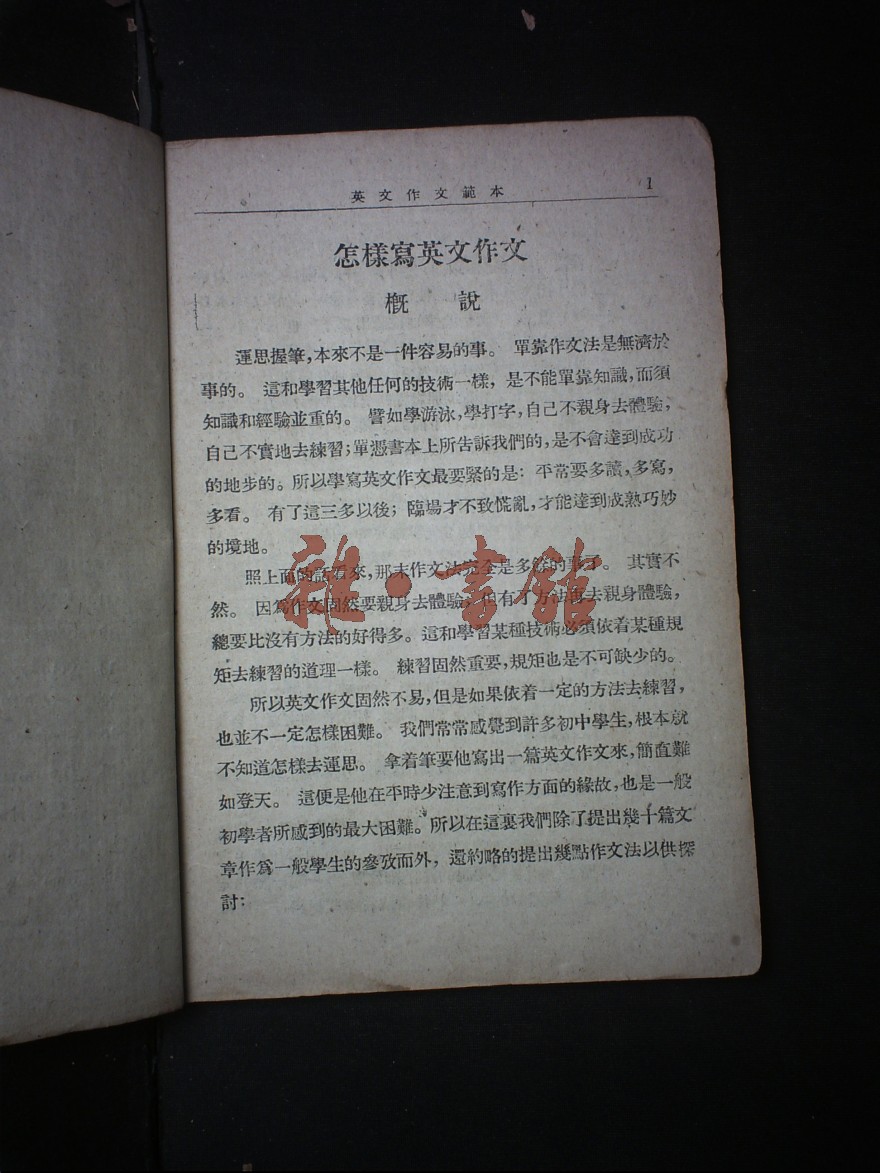 英文作文範本 1
怎樣寫英文作文
概說
運思握筆,本來不是一件容易的事。 單靠作文法是無濟於
事的。 這和學習其他任何的技術一樣, 是不能單靠知識,而須
知識和經驗並重的。 譬如學游泳,學打字,自己不親身去體驗,
自己不實地去練習;單憑書本上所告訴我們的,是不會達到成功
的地步的。所以學寫英文作文最要緊的是: 平常要多讀,多寫,
多看。 有了這三多以後; 臨場才不致慌亂,才能達到成熟巧妙
的境地。
照上面的話看來,那末作文法完全是多餘的事了。 其實不
然。 因爲作文固然要親身去體驗,但有了方法再去親身體驗,
總要比沒有方法的好得多。這和學習某種技術必須依着某種規
矩去練習的道理一樣。 練習固然重要,規矩也是不可缺少的。
所以英文作文固然不易,但是如果依着一定的方法去練習,
也並不一定怎樣困難。 我們常常感覺到許多初中學生,根本就
不知道怎樣去運思。 拿着筆要他寫出一篇英文作文來,簡直難
如登天。 這便是他在平時少注意到寫作方面的緣故,也是一般
初學者所感到的最大困難。所以在這裏我們除了提出幾十篇文
章作爲一般學生的參攷而外, 還約略的提出幾點作文法以供探
討:
雜·書館